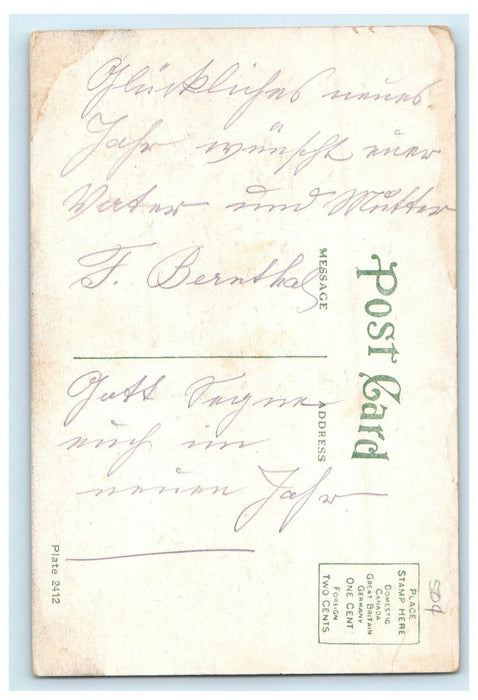 Glückliches neues
Jahr wünscht euer
Vater und Mutter
F. Bernthal
Gott Segne
euch im
neuen Jahr
MESSAGE
Post Card
ADDRESS
PLACE
STAMP HERE
DOMESTIC
CANADA
GREAT BRITAIN
GERMANY
ONE CENT
FOREIGN
TWO CENTS
50¢
Plate 2412